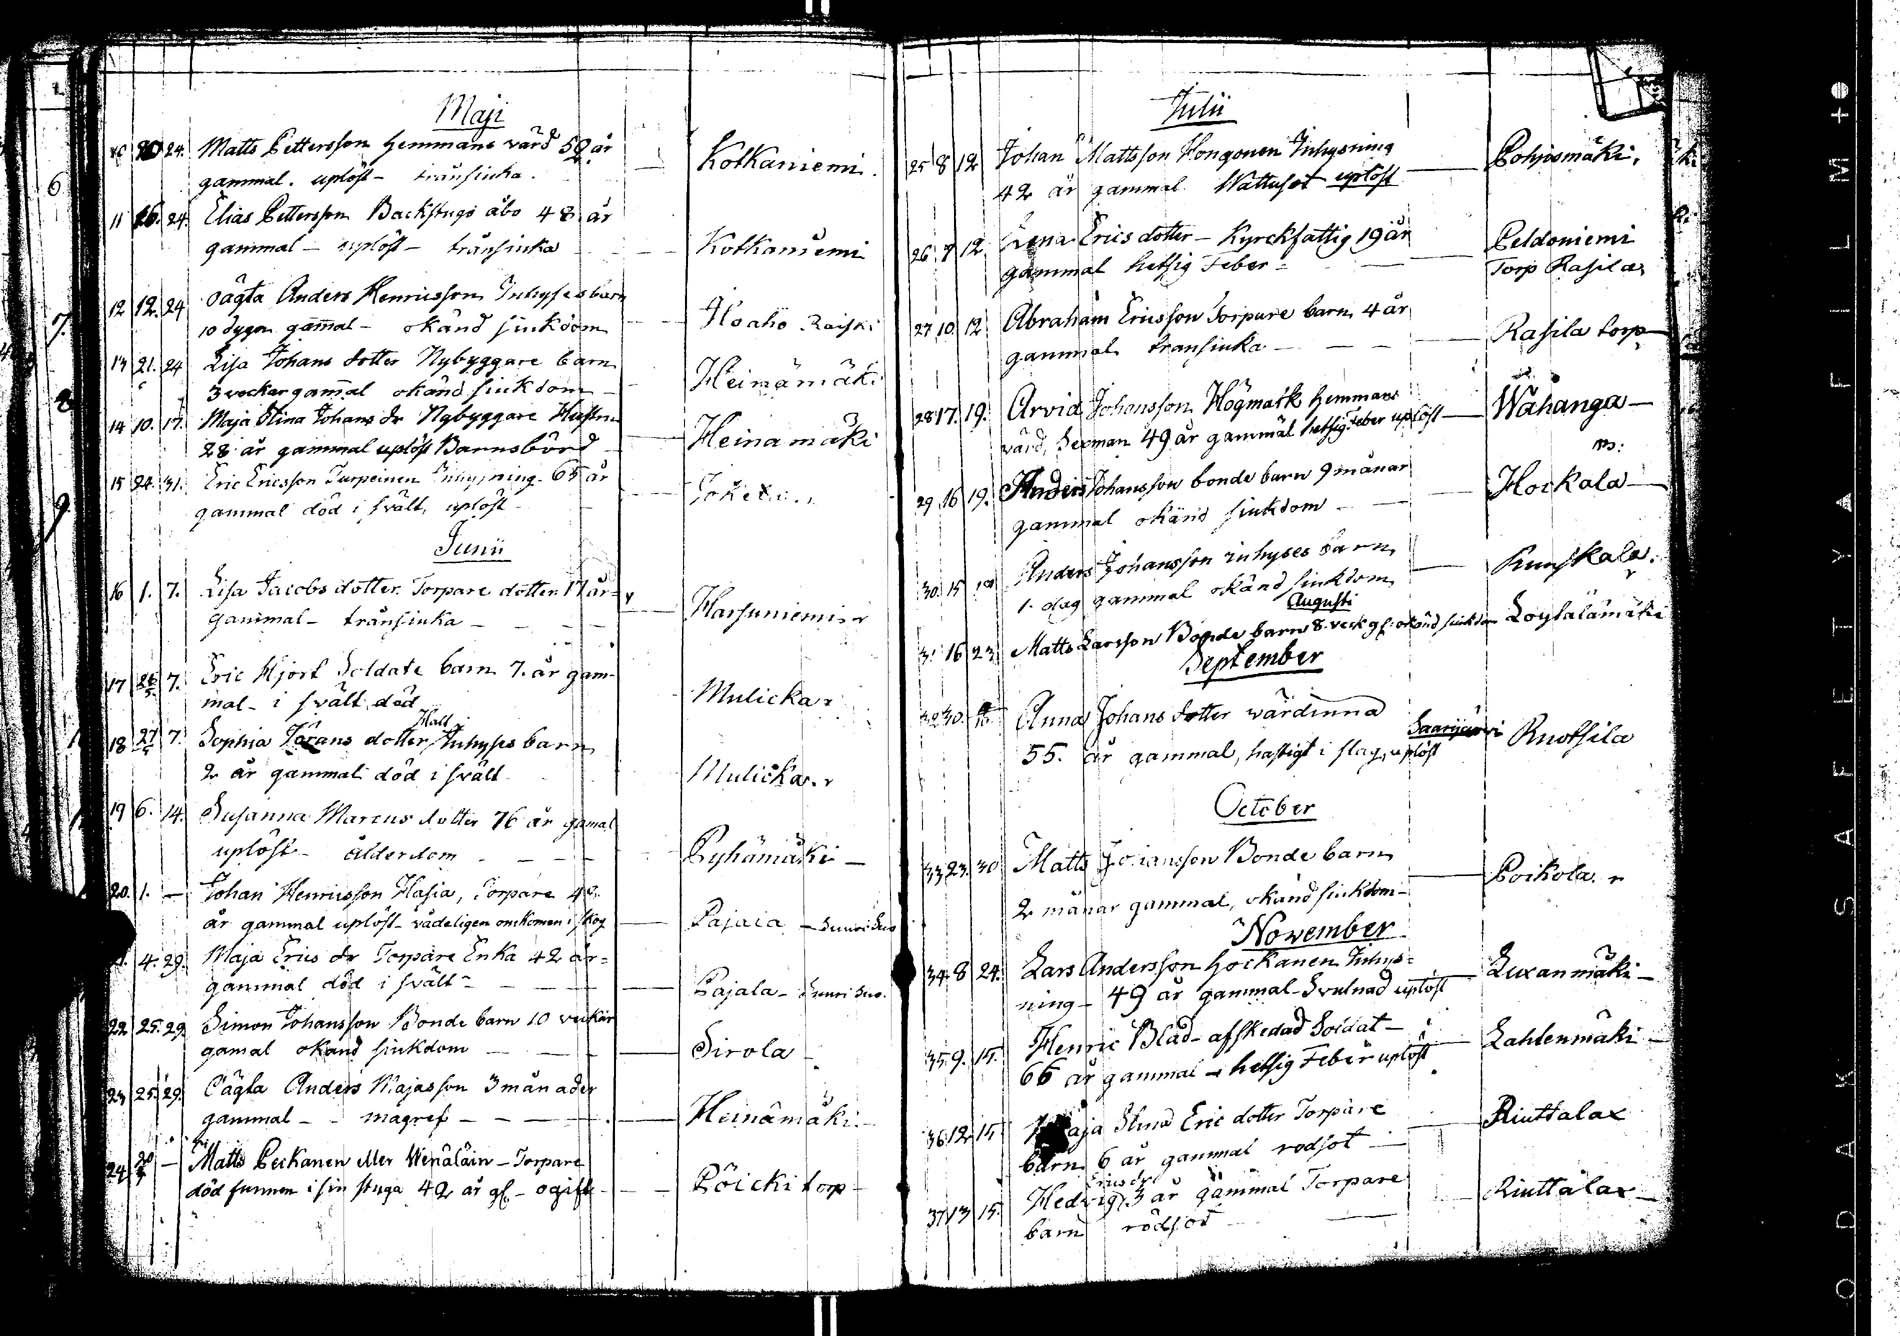 Maji
10 20 24. Matts Pettersson Hemmans värd 59 år
gammal. uplöst - trånsiuka. Kotkaniemi.
11 16. 24. Elias Pettersson Backstugs åbo 48 år
gammal - uplöst - trånsiuka Kotkaniemi
12 12. 24 Oägta Anders Henricsson Inhyses barn
10 dygn gam̅al - okänd siukdom Hoaho Raiski
13 21. 24 Lisa Johans dotter Nybyggare barn
3 veckor gam̅al okänd siukdom Heinämäki
14 10. 17. Maja Stina Johans dr Nybyggare Hustru
28 år gammal uplöst Barnsbörd Heinamäki
15 24. 31. Eric Ericsson Turpeinen Inhysning 65 år
gammal död i svält, uplöst
Junii
16 1. 7. Lisa Jacobs dotter Torpare dotter 17 år
gammal - trånsiuka - Harsuniemi
17 26/5 7. Eric Hjort Soldate barn 7. år gam-
mal - i svält död Mulicka
18 27/5 7. Sophia Görans dotter Hall Inhyses barn
2 år gammal död i svält Mulicka
19 6. 14. Susanna Marcus dotter 76 år gamal
uplöst - ålderdom Pyhämäki -
20. 1. - Johan Henricsson Hasia, Torpare 40
år gammal uplöst - vådeligen omkomen i skog Pajala - Suuri Suo
4. 29. Maja Erics dr Torpare Enka 42 år =
gammal död i svält - Pajala - Suuri Suo.
22 25. 29. Simon Johansson Bonde barn 10 veckor
gamal okänd siukdom Sirola -
23 25. 29. Oägta Anders Majasson 3 månader
gammal - magref - Heinämäki
24 30/4 - Matts Peckanen eller Wenäläin - Torpare
död funnen i sin stuga 42 år gl - ogift Pöicki torp
Julii
25 8 12 Johan Mattsson Hongonen Inhysning
42 år gammal Wattusot uplöst Pohjosmäki.
26. 9 12. Lena Erics dotter - Kyrckfattig 19 år
gammal hetsig Feber = Peldoniemi
Torp Rasila
27 10 12. Abraham Ericsson Torpare barn 4 år
gammal transiuka - Rasila torp
28 17. 19. Arvid Johansson Högmark Hemmans
värd, Sexman 49 år gammal hetsig Feber uplöst Wähanga -
29 16 19. Anders Johansson bonde barn 9 månar
gammal okänd siukdom - Hockala
30 15 19 Anders Johansson inhyses barn
1. dag gammal okänd siukdom Kunskala.
Augusti
31 16 23 Matts Larsson Bonde barn 8. veck gl: okänd siukdom Löytälämäki
September
32 30. Anna Johans dotter värdinna
55. år gammal, hastigt i slag, uplöst Saarijärvi Ruotsila
October
33 23. 30 Matts Johansson Bonde barn
2 månar gammal, okänd siukdom - Poikola
November
34 8 24. Lars Andersson Hockanen Inhys=
ning - 49 år gammal - Svulnad uplöst Luxanmäki -
35. 9. 15. Henric Blad - afskedad Soldat -
66 år gammal - hetsig Feber uplöst Lahtenmäki -
36 12 15 Maja Stina Eric dotter Torpare
barn 6 år gammal rodsot - Riuttalax
37 13 15. Hedvig Erics dr 3 år gammal Torpare
barn rödsot Riuttalax
KODAK SAFETY FILM